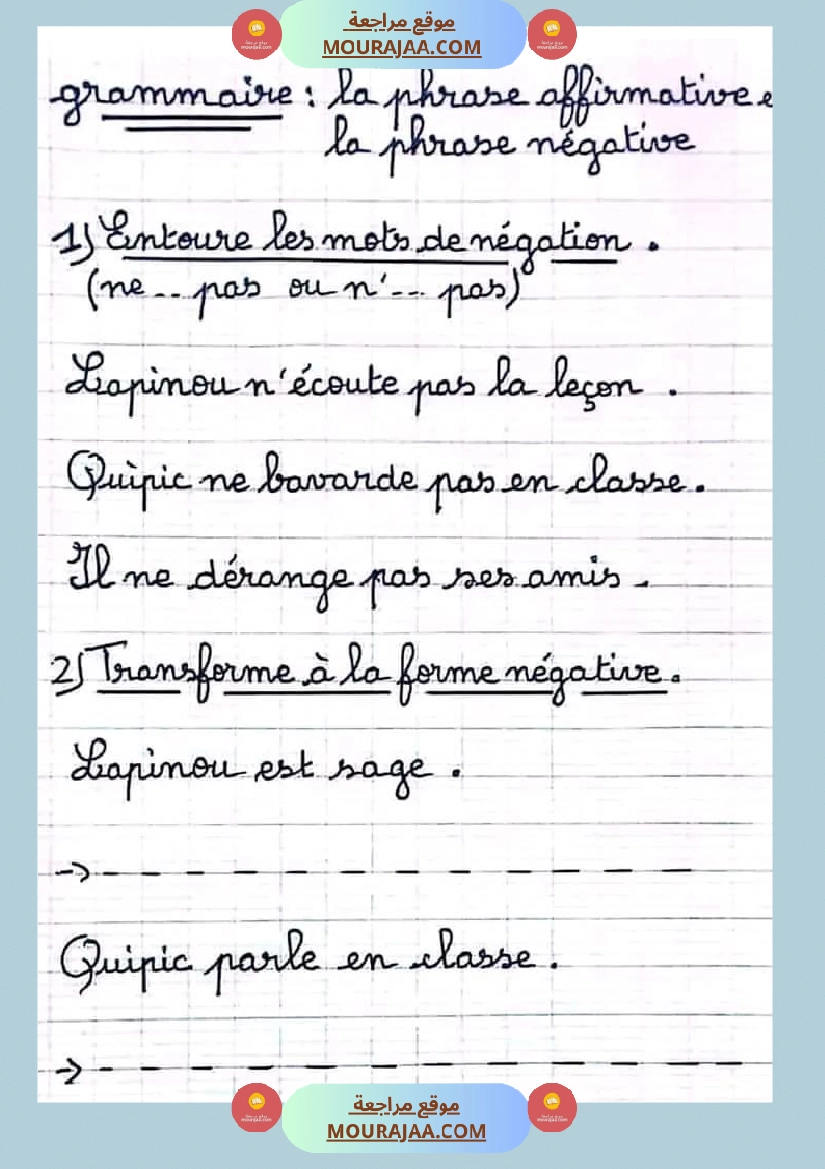 موقع مراجعة
MOURAJAA.COM
grammaire : la phrase affirmative e
la phrase négative
1) Entoure les mots de négation .
(ne -- pas ou n'--- pas)
Lapinou n'écoute pas la leçon .
Quipic ne bavarde pas en classe.
Il ne dérange pas ses amis .
2) Transforme à la forme négative.
Lapinou est sage .
-> - - - - - - - - - - - -
Quipic parle en classe .
-> - - - - - - - - - - - - - -
موقع مراجعة
MOURAJAA.COM